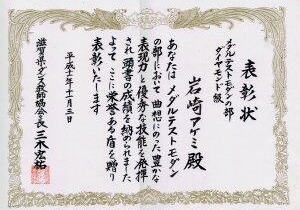 表彰状
メダルテストモダンの部
ダイヤモンド級
岩崎アケミ殿
あなたはメダルテストモダン
の部において曲想にのった豊かな
表現力と優秀な技能を発揮
され頭書の成績を納められました
よってここに栄誉ある盾を贈り
表彰いたします
平成十年十一月三日
滋賀県ダンス教師協会会長 三木宏祐